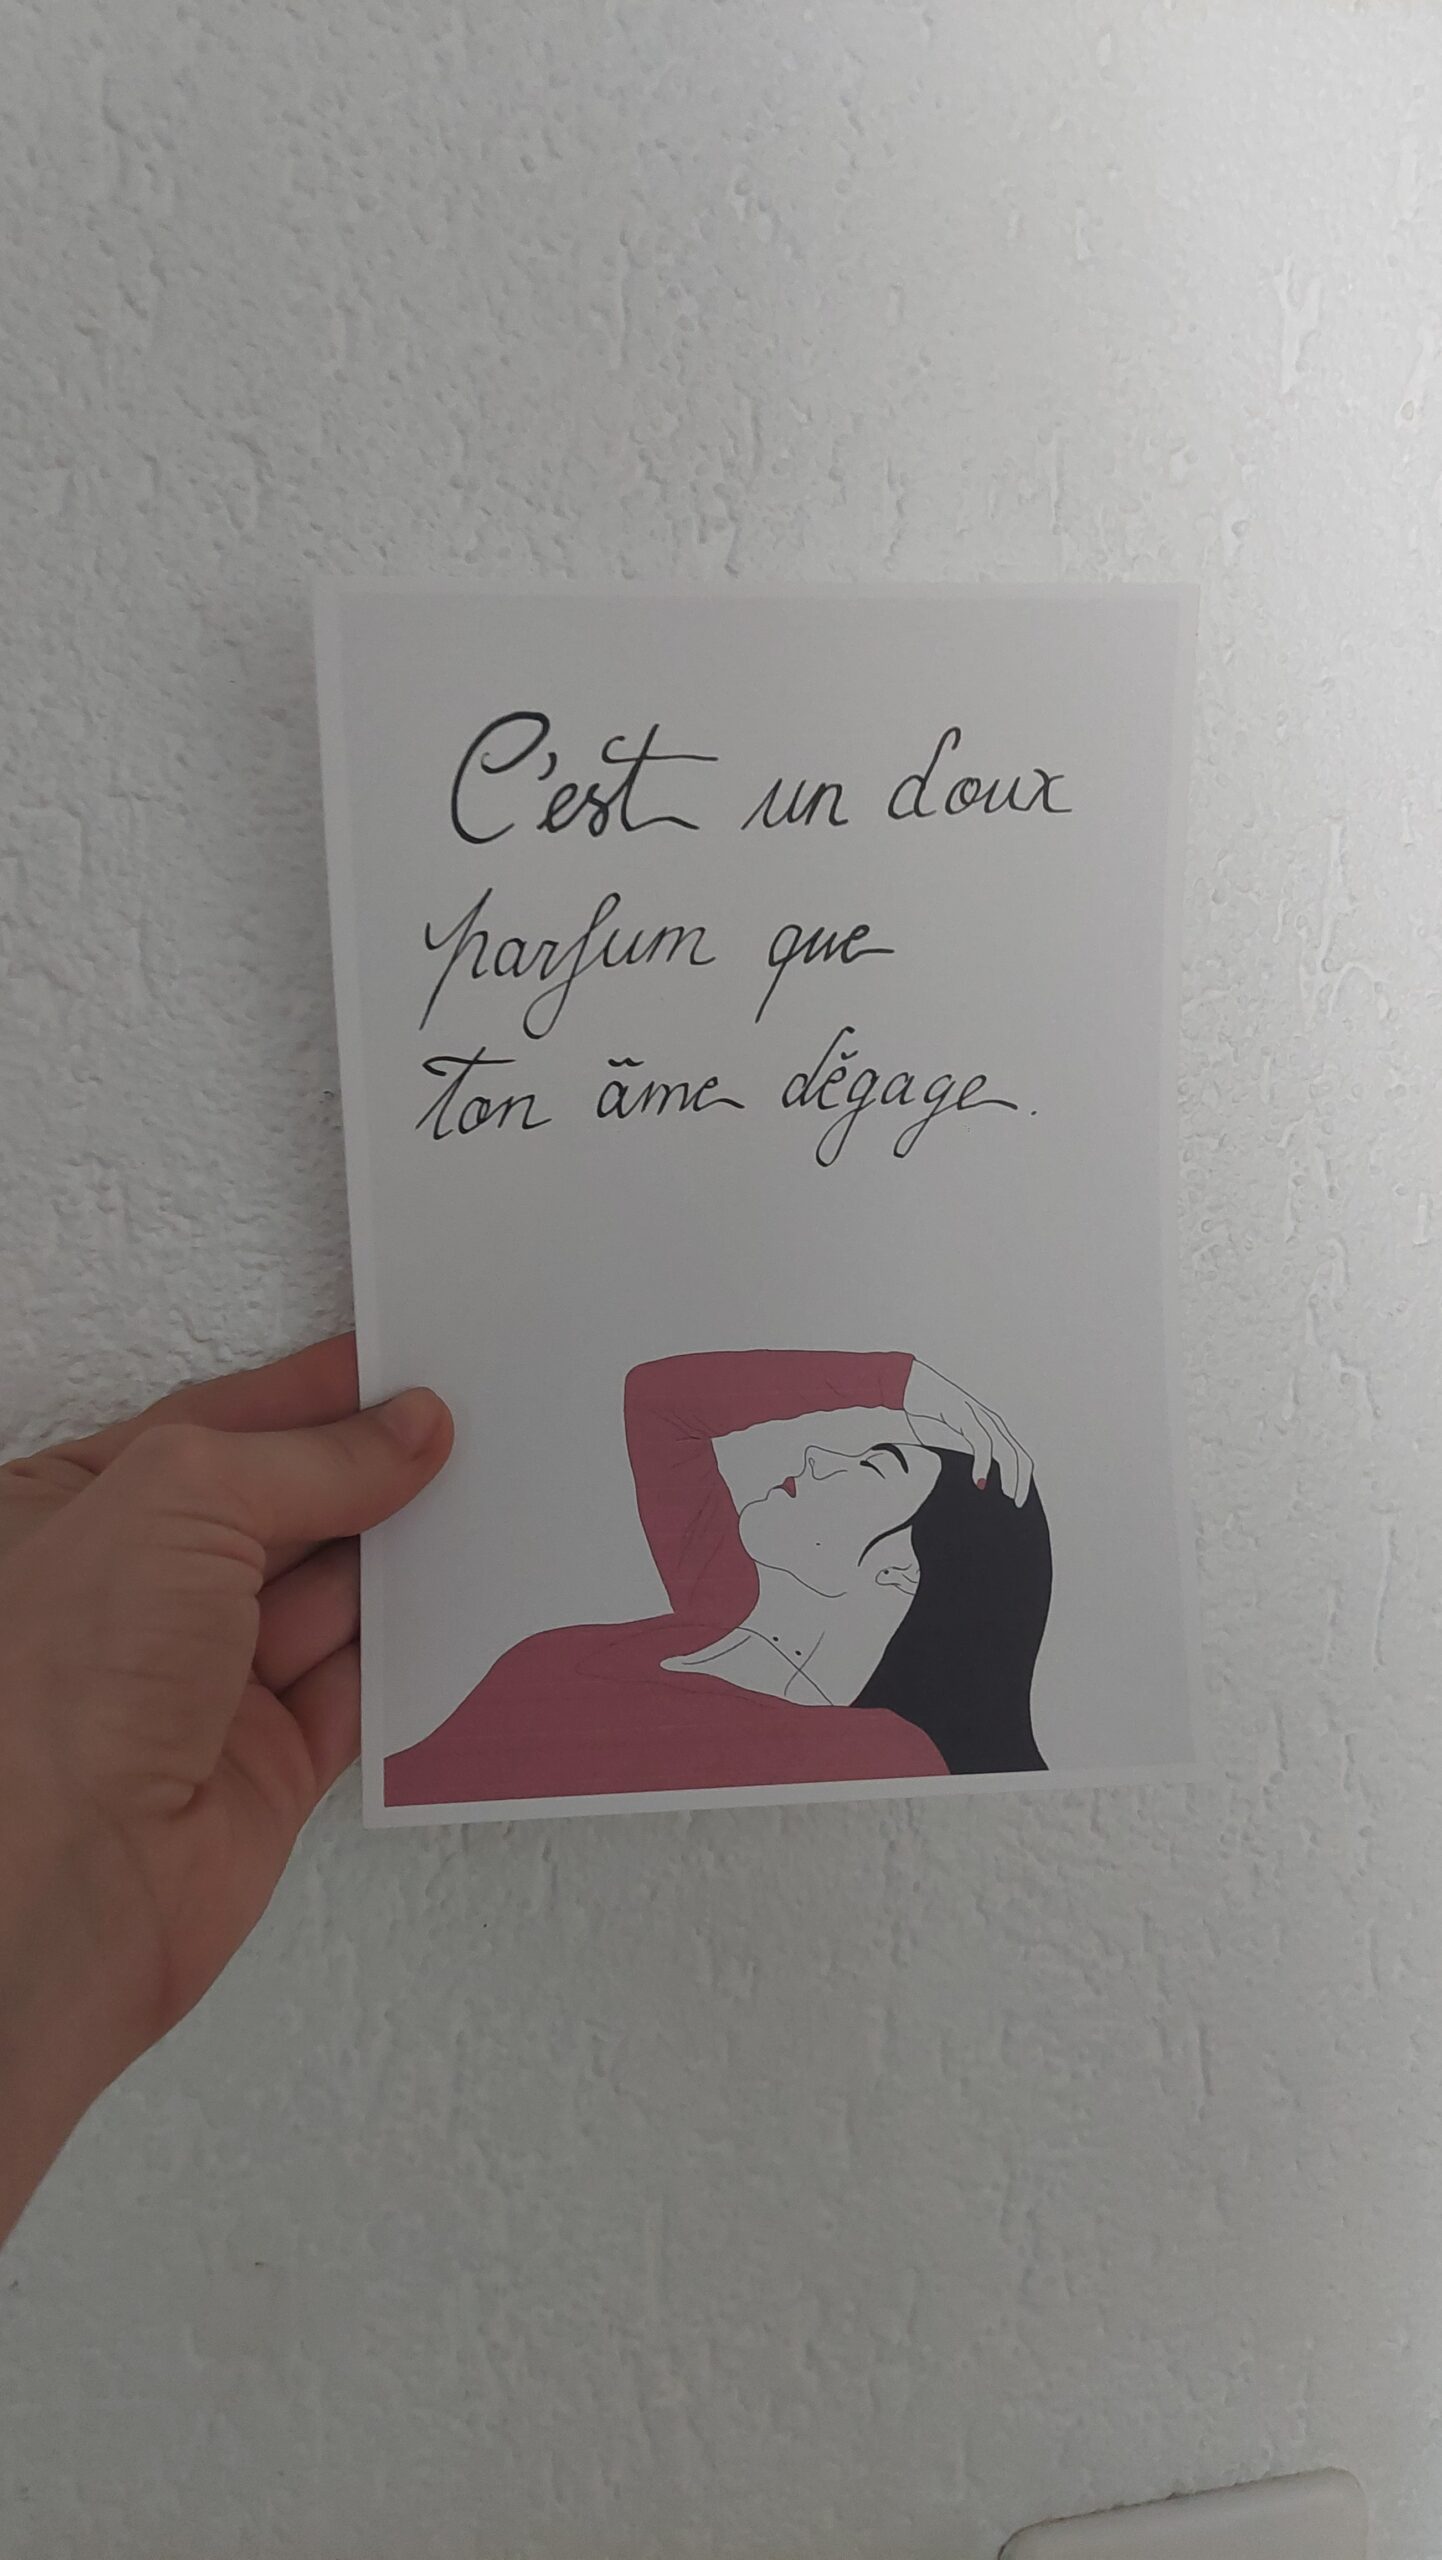 C'est un doux
parfum que
ton âme dégage.